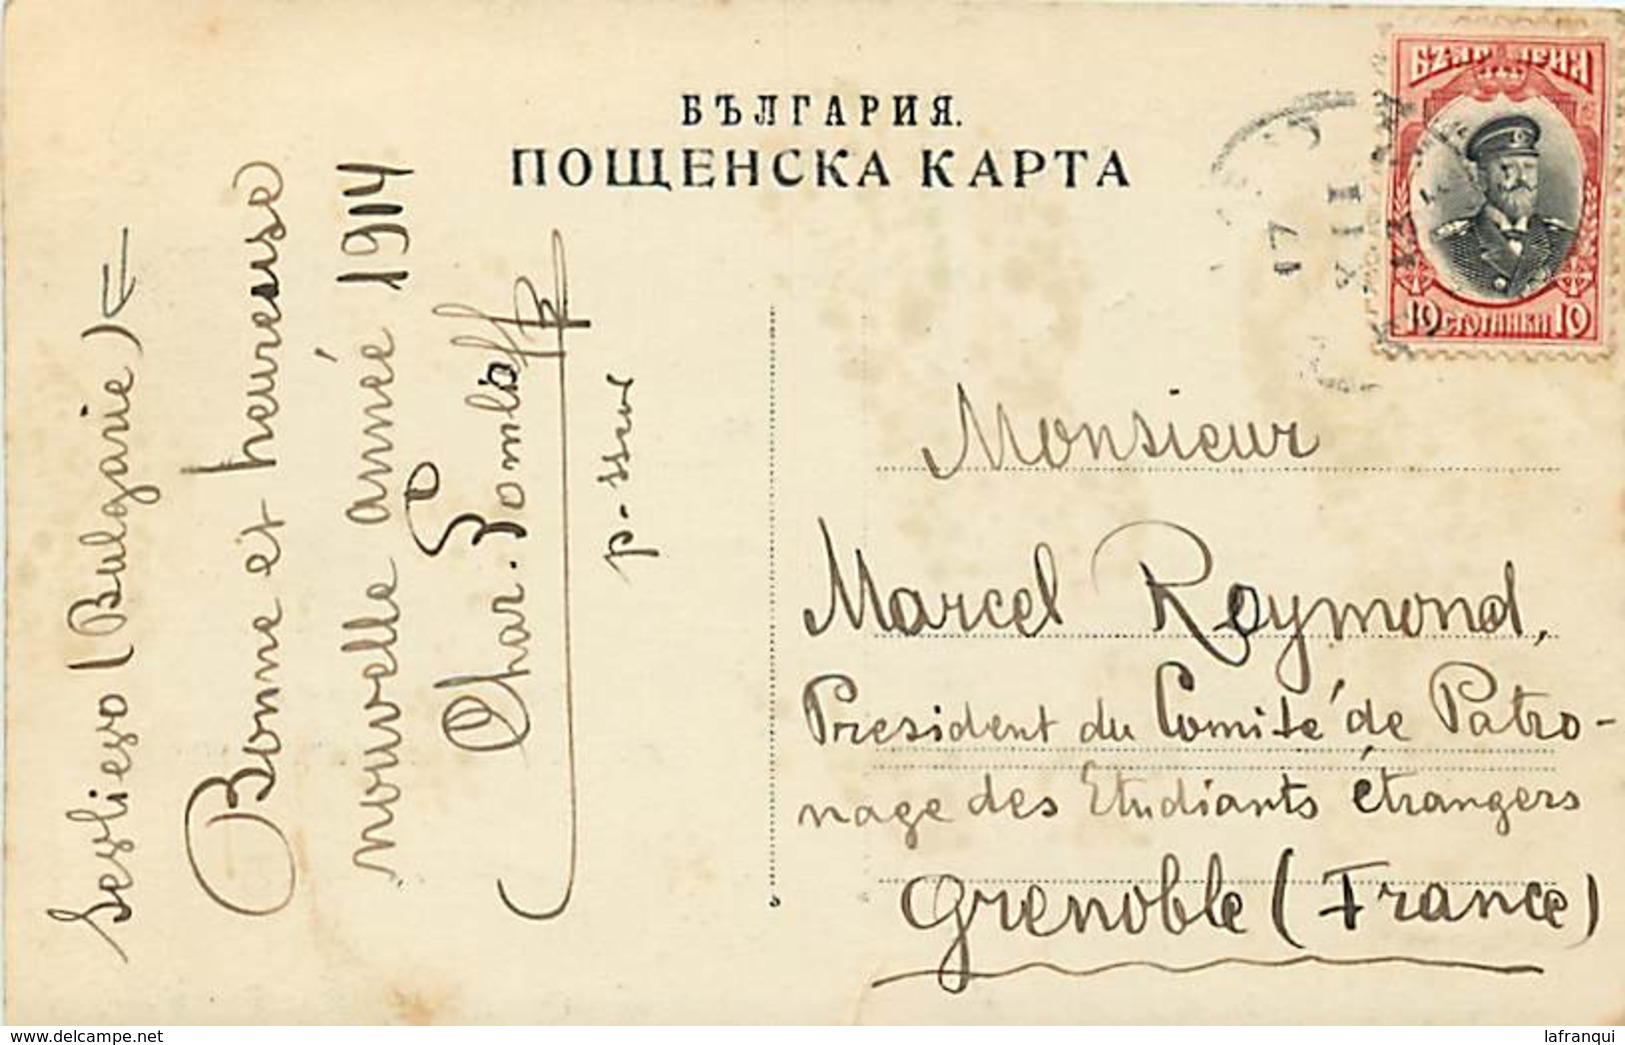 БЪЛГАРИЯ.
ПОЩЕНСКА КАРТА
БЪЛГАРИЯ
10 СТОТИНКИ 10
17
XII
Sevlievo (Bulgarie)
Bonne et heureuse
nouvelle année 1914
Char.
Monsieur
Marcel Reymond,
President du Comité de Patro-
nage des Etudiants étrangers
Grenoble (France)
lafranqui
www.delcampe.net